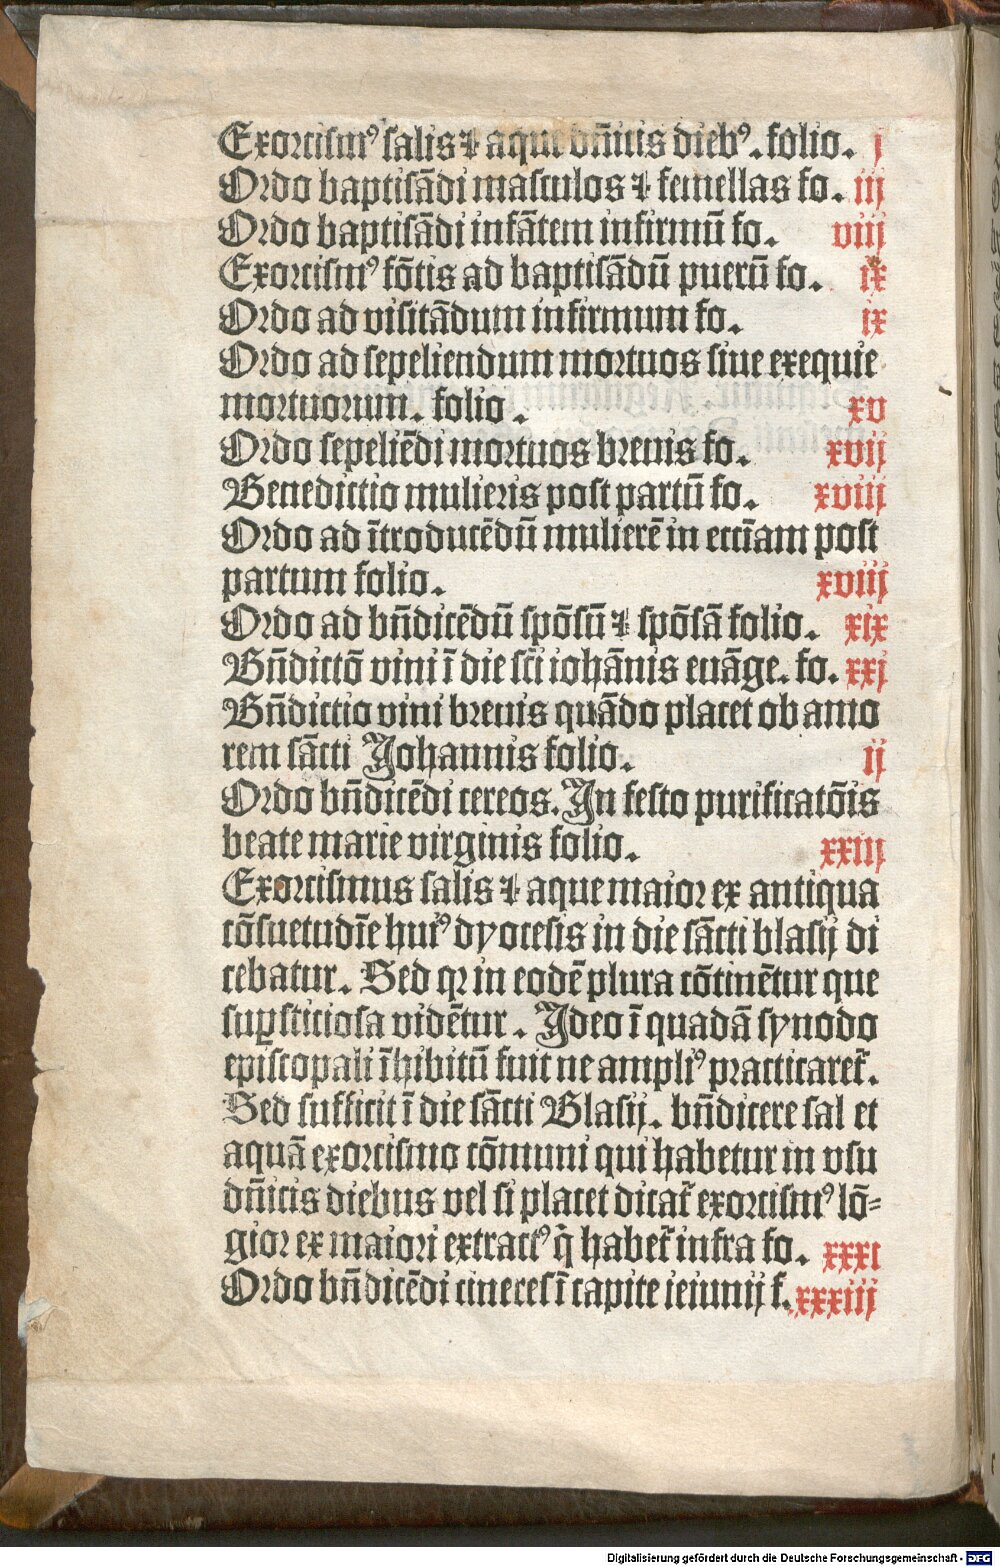 Exorcismꝰ salis ⁊ aque dn̄icis diebꝰ. folio. j
Ordo baptisādi masculos ⁊ femellas fo. iij
Ordo baptisādi infātem infirmū fo. viij
Exorcismꝰ fōtis ad baptisādū puerū fo. ix
Ordo ad visitādum infirmum fo. ix
Ordo ad sepeliendum mortuos siue exequie
mortuorum. folio. xv
Ordo sepeliēdi mortuos breuis fo. xvij
Benedictio mulieris post partū fo. xviij
Ordo ad ītroducēdū mulierē in eccīam post
partum folio. xviij
Ordo ad bn̄dicēdū spōsū ⁊ spōsā folio. xix
Bn̄dictō vini ī die scī iohānis euāge. fo. xxj
Bn̄dictio vini breuis quādo placet ob amo
rem sācti Johannis folio. ij
Ordo bn̄dicēdi cereos. In festo purificatōis
beate marie virginis folio. xxiij
Exorcismus salis ⁊ aque maior ex antiqua
cōsuetudīe huiꝰ dyocesis in die sācti blasij di
cebatur. Sed qꝛ in eodē plura cōtinētur que
suꝑsticiosa vidētur. Ideo ī quadā synodo
episcopali īhibitū fuit ne ampliꝰ practicaret̄.
Sed sufficit ī die sācti Blasij. bn̄dicere sal et
aquā exorcismo cōmuni qui habetur in vsu
dn̄icis diebus vel si placet dicat̄ exorcismꝰ lō⸗
gior ex maiori extractꝰ q̄ habet̄ infra fo. xxxi
Ordo bn̄dicēdi cineces ī capite ieiunij f. xxxiij
Digitalisierung gefördert durch die Deutsche Forschungsgemeinschaft - DFG